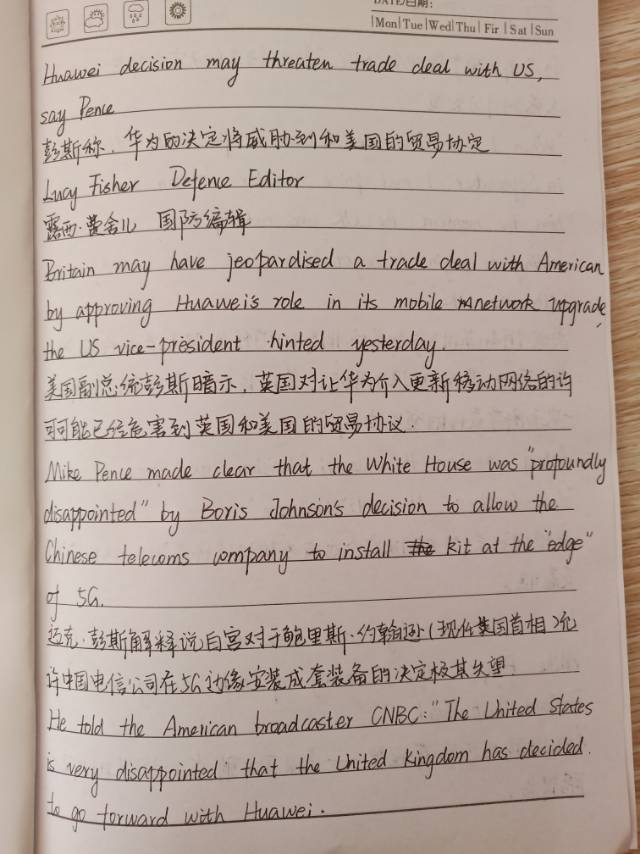 DATE/日期:
Mon Tue Wed Thu Fir Sat Sun
Huawei decision may threaten trade deal with US,
say Pence
彭斯称，华为的决定将威胁到和美国的贸易协定
Lucy Fisher Defence Editor
露西·费舍儿 国防编辑
Britain may have jeopardised a trade deal with American
by approving Huawei's role in its mobile network upgrade,
the US vice-president hinted yesterday.
美国副总统彭斯暗示，英国对让华为介入更新移动网络的许
可可能已经危害到英国和美国的贸易协议.
Mike Pence made clear that the White House was "profoundly
disappointed" by Boris Johnson's decision to allow the
Chinese telecoms company to install kit at the "edge"
of 5G.
迈克·彭斯解释说白宫对于鲍里斯·约翰逊（现任英国首相）允
许中国电信公司在5G边缘安装成套装备的决定极其失望.
He told the American broadcaster CNBC: "The United States
is very disappointed that the United Kingdom has decided
to go forward with Huawei.